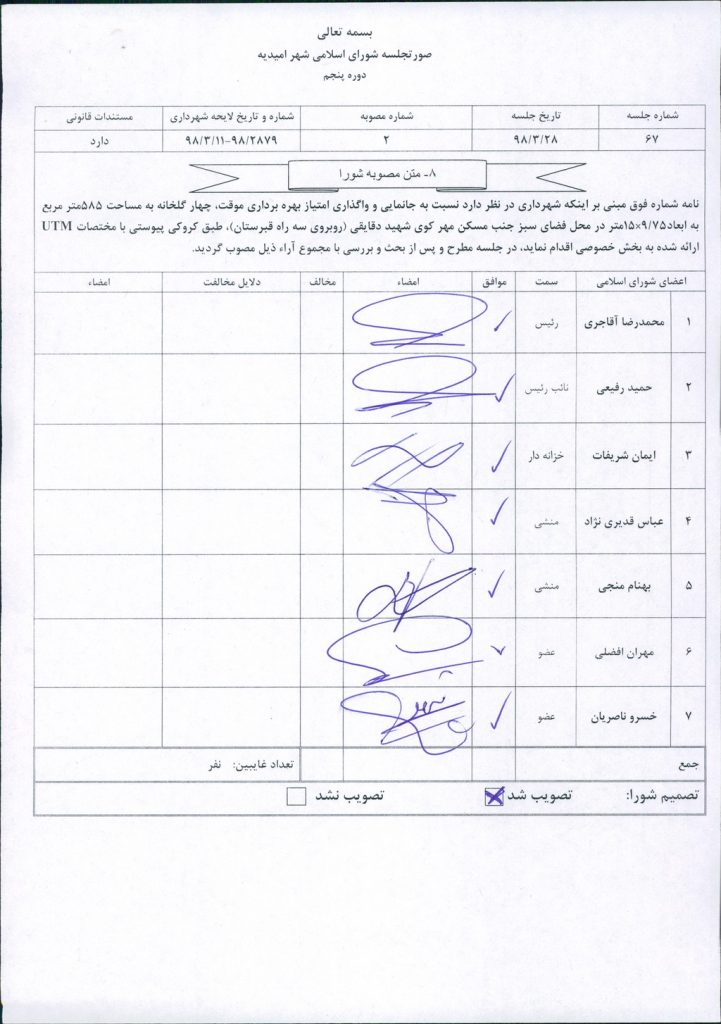 بسمه تعالی
صورتجلسه شورای اسلامی شهر امیدیه
دوره پنجم
شماره جلسه تاریخ جلسه شماره مصوبه شماره و تاریخ لایحه شهرداری مستندات قانونی
۶۷ ۹۸/۳/۲۸ ۲ ۹۸/۳/۱۱-۹۸/۲۸۷۹ دارد
۸- متن مصوبه شورا
نامه شماره فوق مبنی بر اینکه شهرداری در نظر دارد نسبت به جانمایی و واگذاری امتیاز بهره برداری موقت، چهار گلخانه به مساحت ۵۸۵متر مربع
به ابعاد۹/۷۵×۱۵متر در محل فضای سبز جنب مسکن مهر کوی شهید دقایقی (روبروی سه راه قبرستان)، طبق کروکی پیوستی با مختصات UTM
ارائه شده به بخش خصوصی اقدام نماید، در جلسه مطرح و پس از بحث و بررسی با مجموع آراء ذیل مصوب گردید.
اعضای شورای اسلامی سمت موافق امضاء مخالف دلایل مخالفت امضاء
۱ محمدرضا آقاجری رئیس
۲ حمید رفیعی نائب رئیس
۳ ایمان شریفات خزانه دار
۴ عباس قدیری نژاد منشی
۵ بهنام منجی منشی
۶ مهران افضلی عضو
۷ خسرو ناصریان عضو
جمع تعداد غایبین: نفر
تصمیم شورا: تصویب شد تصویب نشد